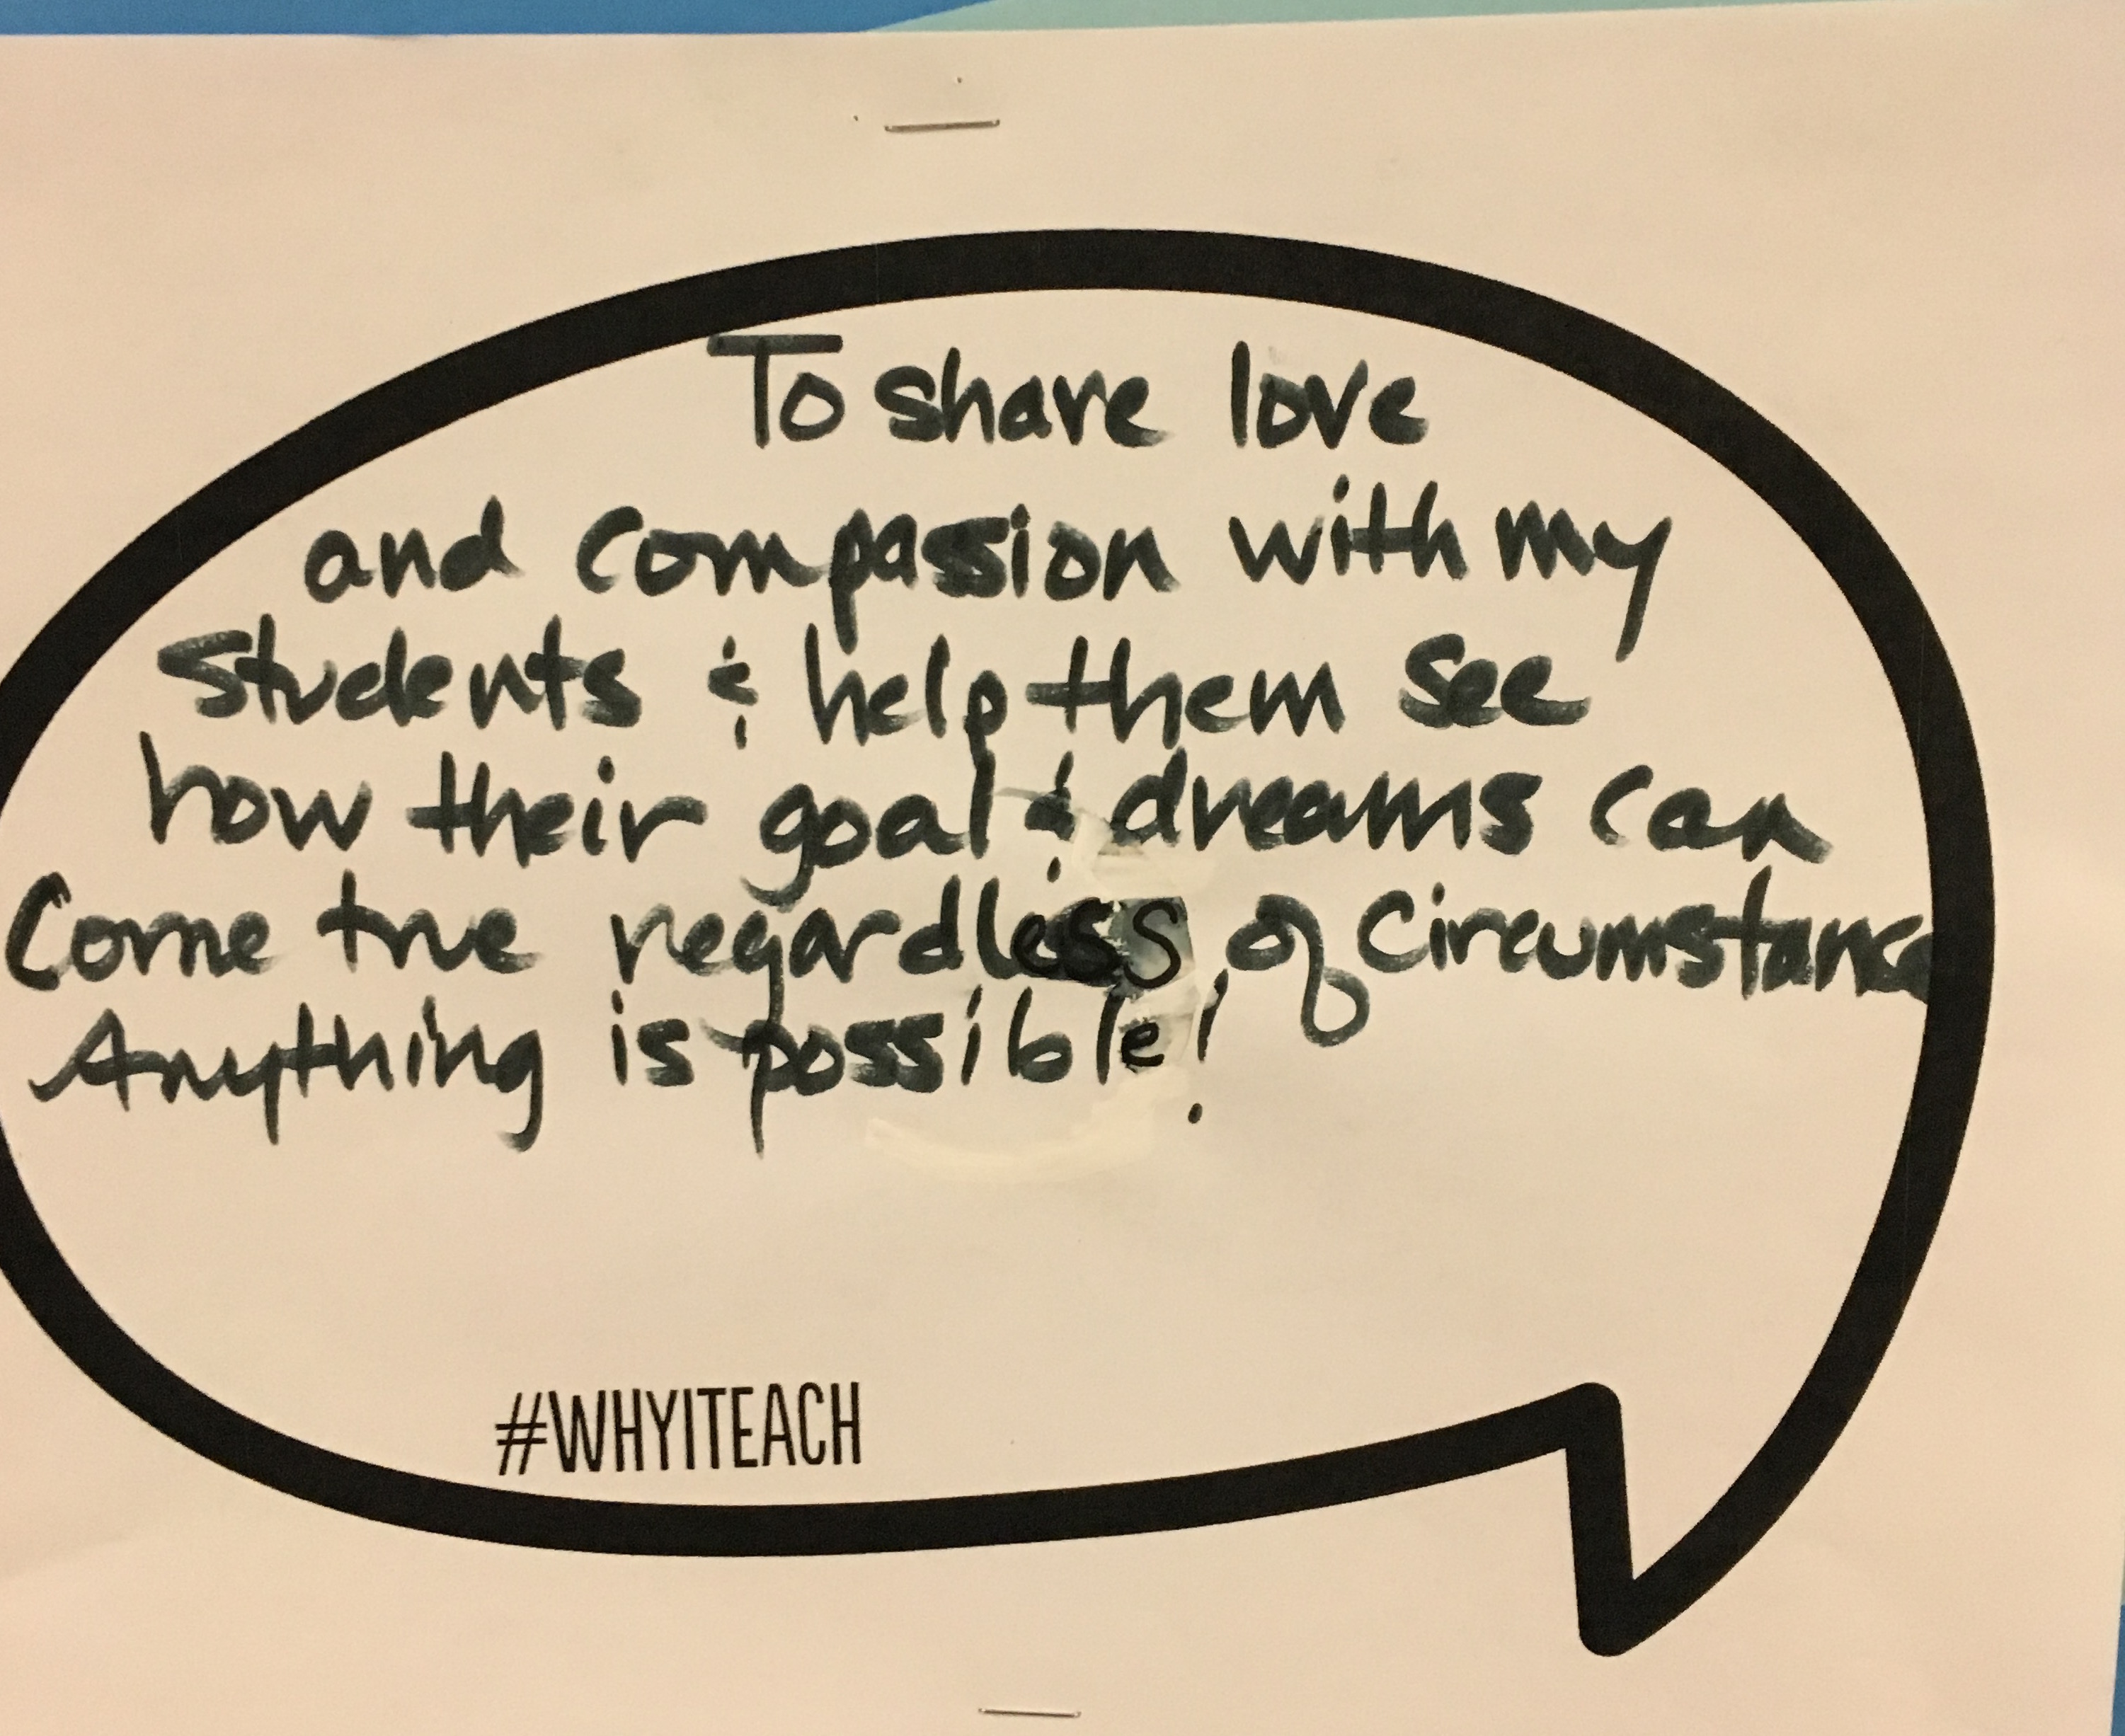 To share love
and compassion with my
Students & help them see
how their goal & dreams can
Come true regardless of Circumstance
Anything is possible!
#WHYITEACH